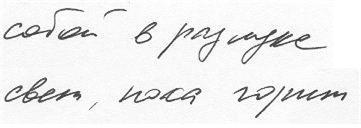 собой в разлуке
свет, пока горит